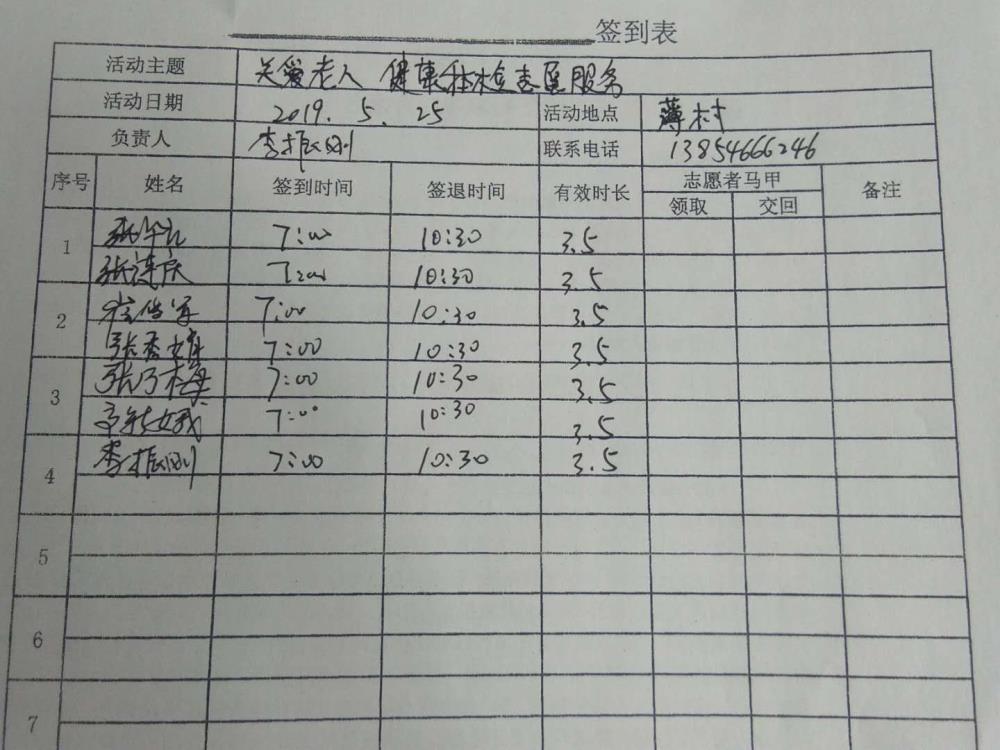 签到表
活动主题 关爱老人 健康体检志愿服务
活动日期 2019.5.25 活动地点 薄村
负责人 李振刚 联系电话 13854666246
序号 姓名 签到时间 签退时间 有效时长 志愿者马甲 备注
领取 交回
1 7:00 10:30 3.5
张连庆 7:00 10:30 3.5
2 7:00 10:30 3.5
张秀娟 7:00 10:30 3.5
3 张乃梅 7:00 10:30 3.5
7:00 10:30 3.5
4 李振刚 7:00 10:30 3.5
5
6
7